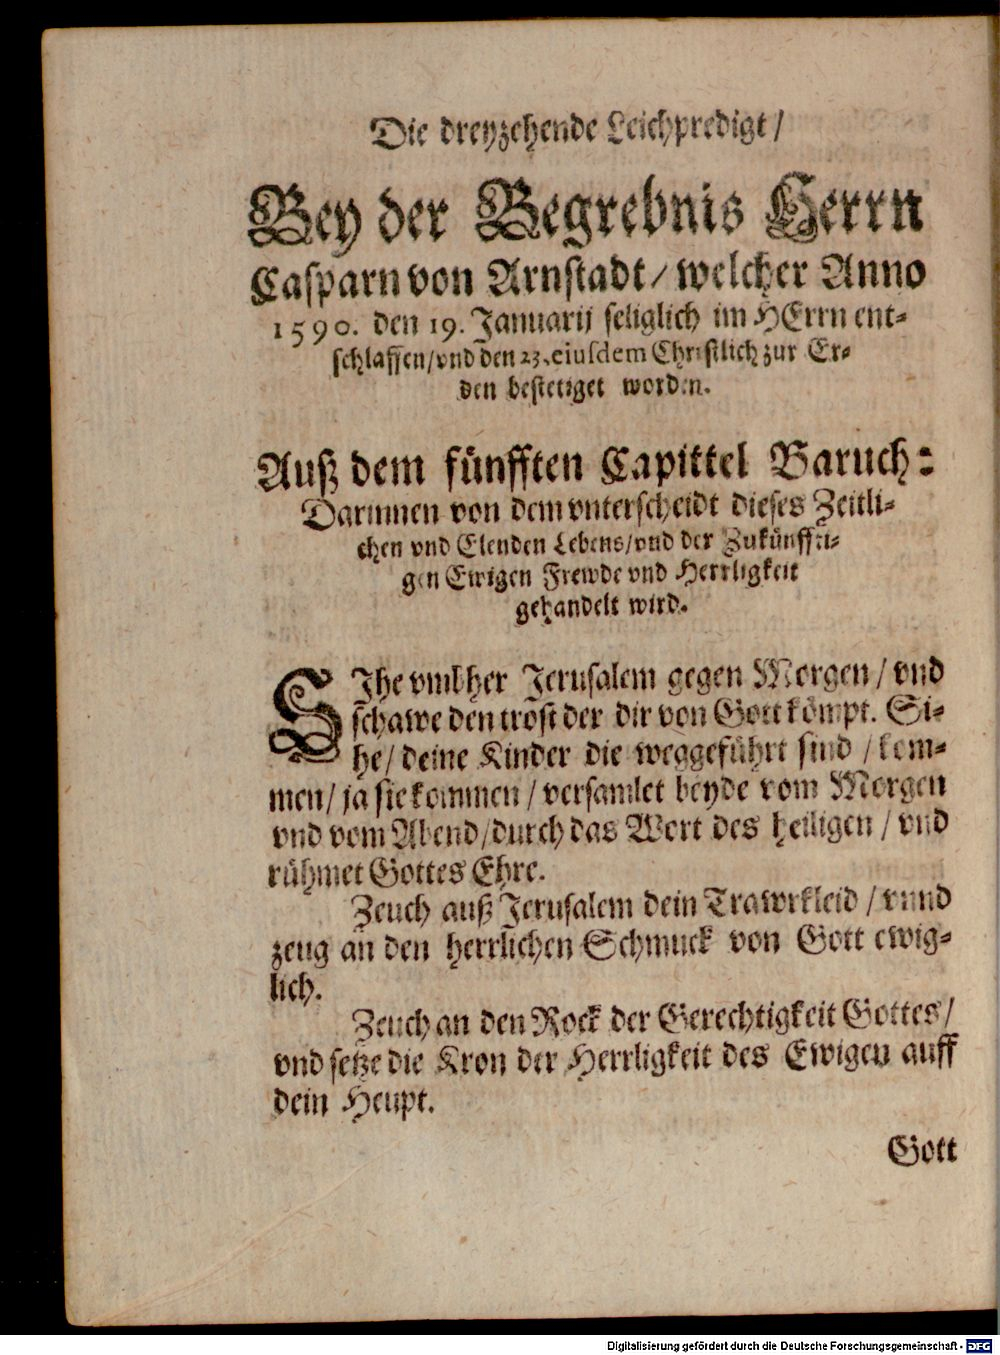 Die dreyzehende Leichpredigt /
Bey der Begrebnis Herrn
Casparn von Arnstadt / welcher Anno
1590. den 19. Januarij seliglich im HErrn ent-
schlaffen / vnd den 23. eiusdem Christlich zur Er-
den bestetiget worden.
Auß dem fünfften Capittel Baruch:
Darinnen von dem vnterscheidt dieses Zeitli-
chen vnd Elenden Lebens / vnd der Zukünffti-
gen Ewigen Frewde vnd Herrligkeit
gehandelt wird.
SIhe vmbher Jerusalem gegen Morgen / vnd
schawe den trost der dir von Gott kömpt. Si-
he / deine Kinder die weggeführt sind / kom-
men / ja sie kommen / versamlet beyde vom Morgen
vnd vom Abend / durch das Wort des heiligen / vnd
rühmet Gottes Ehre.
Zeuch auß Jerusalem dein Trawrkleid / vnnd
zeug an den herrlichen Schmuck von Gott ewig-
lich.
Zeuch an den Rock der Gerechtigkeit Gottes /
vnd setze die Kron der Herrligkeit des Ewigen auff
dein Heupt.
Gott
Digitalisierung gefördert durch die Deutsche Forschungsgemeinschaft - DFG